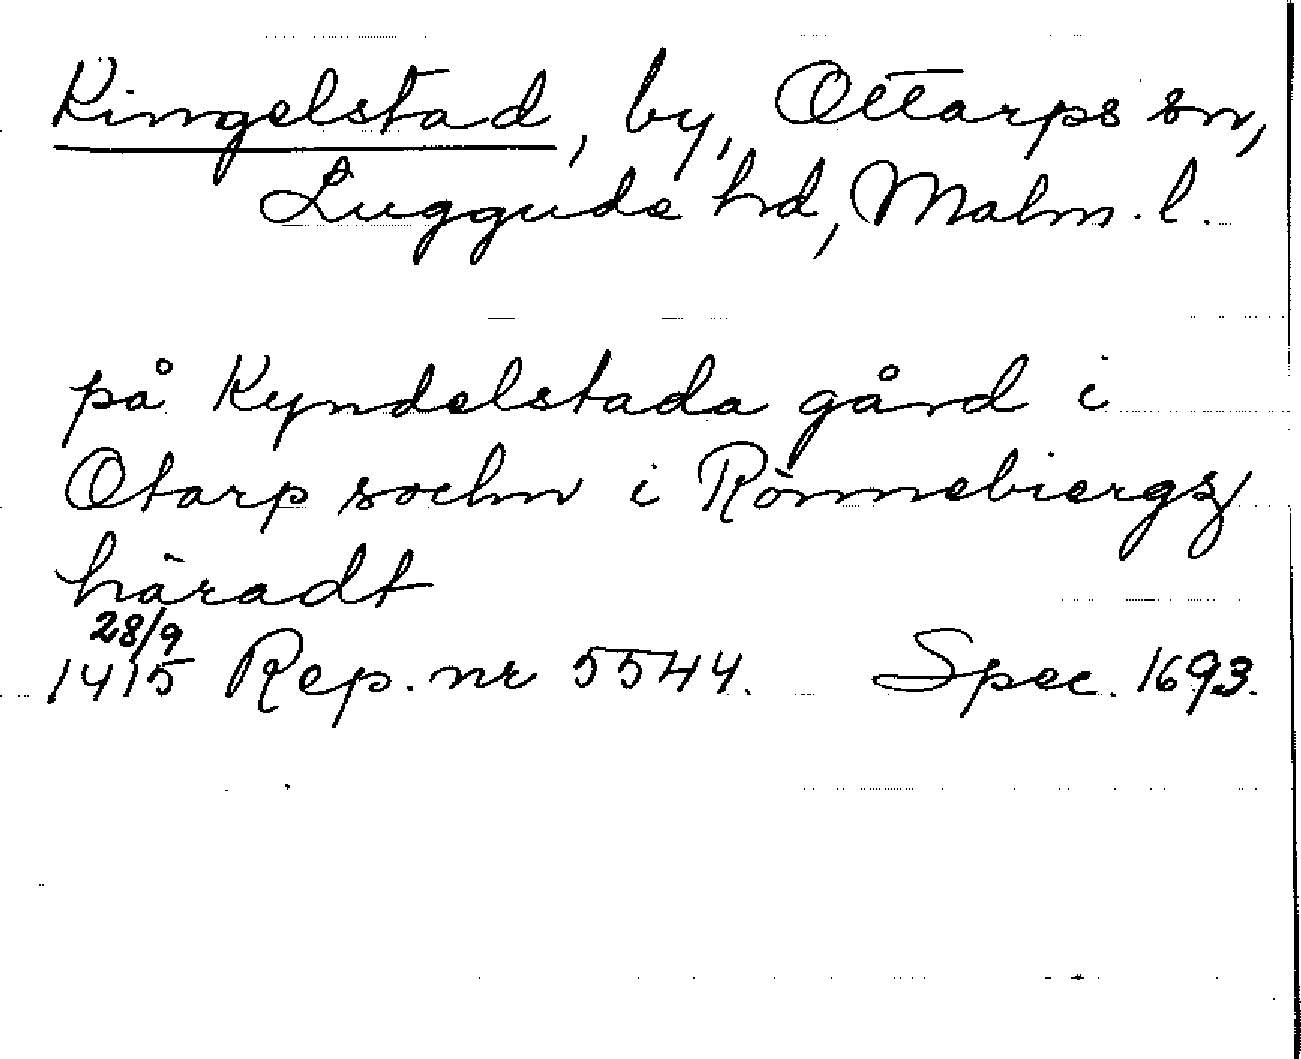 Kingelstad, by, Ottarps sn,
Luggude hd, Malm. l.
på Kyndelstada gård i
Otarp sochn i Rönnebiergs
häradt
28/9
1415 Rep. nr 5544. Spec. 1693.